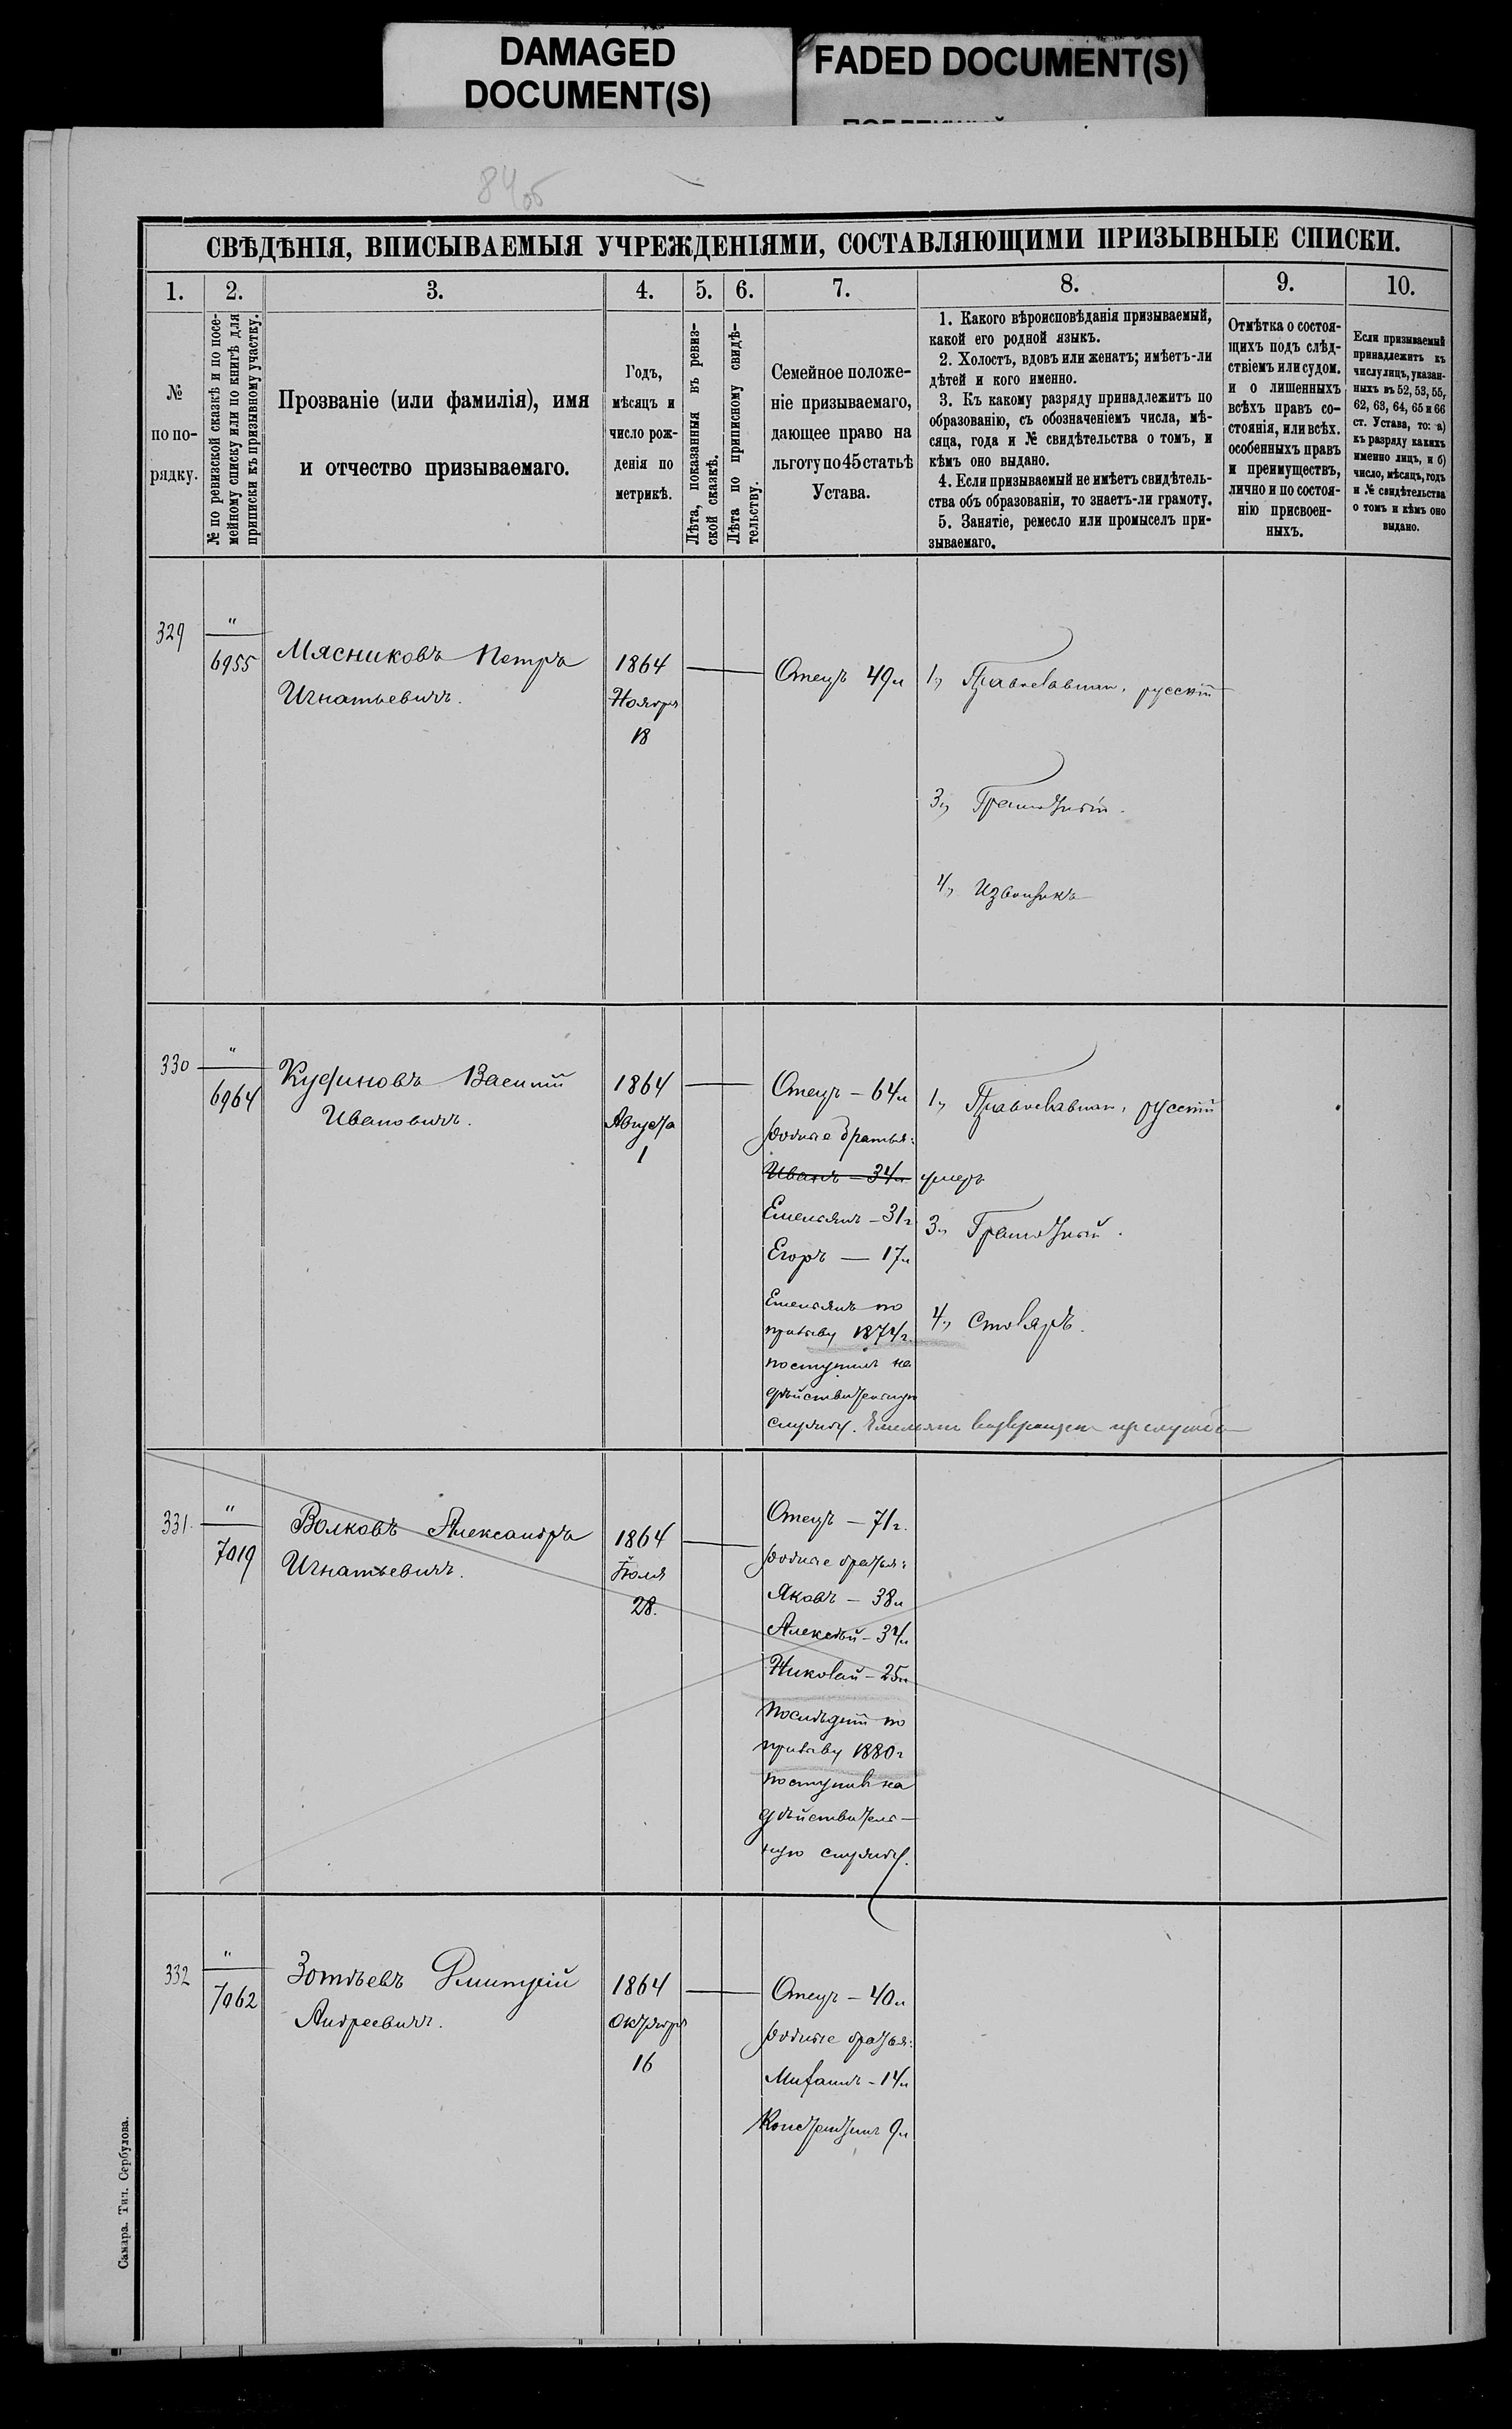 DAMAGED
DOCUMENT(S)
FADED DOCUMENT(S)
84об
СВѢДѢНІЯ, ВПИСЫВАЕМЫЯ УЧРЕЖДЕНІЯМИ, СОСТАВЛЯЮЩИМИ ПРИЗЫВНЫЕ СПИСКИ.
1. 2. 3. 4. 5. 6. 7. 8. 9. 10.
№
по по-
рядку.
№ по ревизской сказкѣ и по посе-
мейному списку или по книгѣ для
приписки къ призывному участку.
Прозваніе (или фамилія), имя
и отчество призываемаго.
Годъ,
мѣсяцъ и
число рож-
денія по
метрикѣ.
Лѣта, показанныя въ ревиз-
ской сказкѣ.
Лѣта по приписному свидѣ-
тельству.
Семейное положе-
ніе призываемаго,
дающее право на
льготу по 45 статьѣ
Устава.
1. Какого вѣроисповѣданія призываемый,
какой его родной языкъ.
2. Холостъ, вдовъ или женатъ; имѣетъ-ли
дѣтей и кого именно.
3. Къ какому разряду принадлежитъ по
образованію, съ обозначеніемъ числа, мѣ-
сяца, года и № свидѣтельства о томъ, и
кѣмъ оно выдано.
4. Если призываемый не имѣетъ свидѣтель-
ства объ образованіи, то знаетъ-ли грамоту.
5. Занятіе, ремесло или промыселъ при-
зываемаго.
Отмѣтка о состоя-
щихъ подъ слѣд-
ствіемъ или судом.
и о лишенныхъ
всѣхъ правъ со-
стоянія, или всѣх.
особенныхъ правъ
и преимуществъ,
лично и по состоя-
нію присвоен-
ныхъ.
Если призываемый
принадлежитъ къ
числу лицъ, указан-
ныхъ въ 52, 53, 55,
62, 63, 64, 65 и 66
ст. Устава, то: а)
къ разряду какихъ
именно лицъ, и б)
число, мѣсяцъ, годъ
и № свидѣтельства
о томъ и кѣмъ оно
выдано.
329
"
6955
Мясниковъ Петръ
Игнатьевичъ.
1864
Ноября
18
Отецъ 49л
1, Православнаго, русскій
3, Грамотный.
4, Извощикъ
330
"
6964
Василій
Ивановичъ.
1864
Августа
1
Отецъ — 64л
родные братья:
Иванъ — 34л умеръ
Емельянъ — 31г
Егоръ — 17л
Емельянъ по
призыву 1874г.
поступилъ на
дѣйствительную
службу. Емельянъ
1, Православнаго, русскій
3, Грамотный.
4, Столяръ.
331.
"
7019
Волковъ Александръ
Игнатьевичъ.
1864
Іюля
28.
Отецъ — 71г.
родные братья:
Яковъ — 38л
Алексѣй — 34л
Николай — 25л
Послѣдній по
призыву 1880г
поступилъ на
дѣйствитель-
ную службу.
332
"
7062
Зотѣевъ Дмитрій
Андреевичъ.
1864
Октября
16
Отецъ — 40л
родные братья:
Михаилъ — 14л
Константинъ 9л
Самара. Тип. Сербулова.